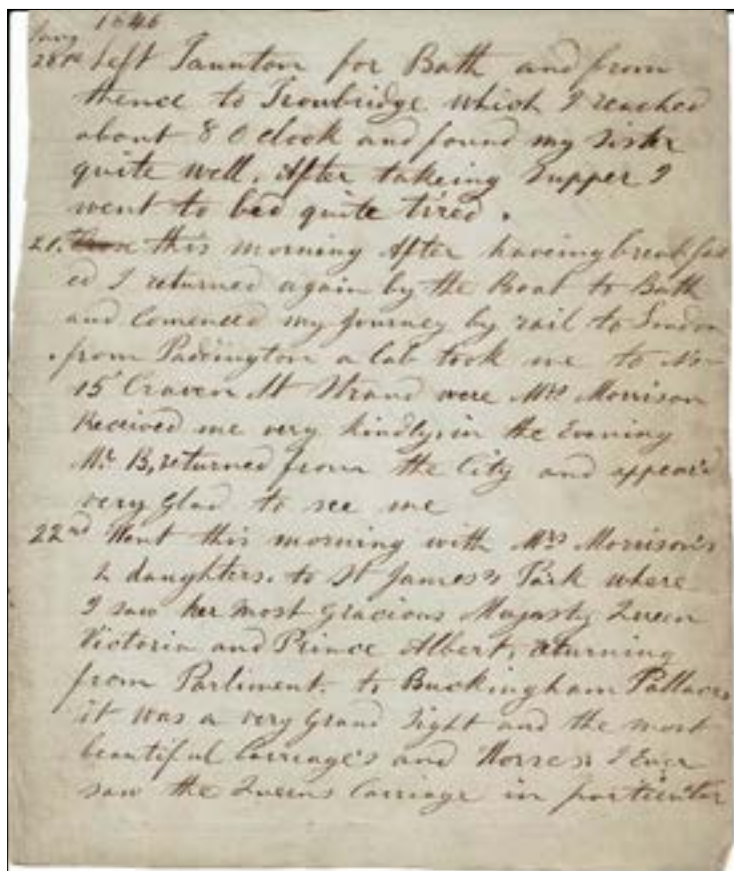 1846
Jany
20th Left Taunton for Bath and from
thence to Trowbridge which I reached
about 8 O clock and found my Sister
quite well. After takeing Supper I
went to bed quite tired.
21. this morning After haveing breakfast
ed I returned again by the Boat to Bath
and Comenced my Journey by rail to London
from Paddington a Cab took me to No
15 Craven St Strand were Mrs Morrison
Received me very kindly, in the Evening
Mr B, returned from the City and appeard
very Glad to see me
22nd Went this morning with Mrs Morrison's
2 daughters. to St James's Park where
I saw her most Gracious Majasty Queen
Victoria and Prince Albert, returning
from Parliment. to Buckingham Pallace,
it was a very Grand Sight and the most
beautiful Carriage's and Horses I Ever
saw the Queens Carriage in particular